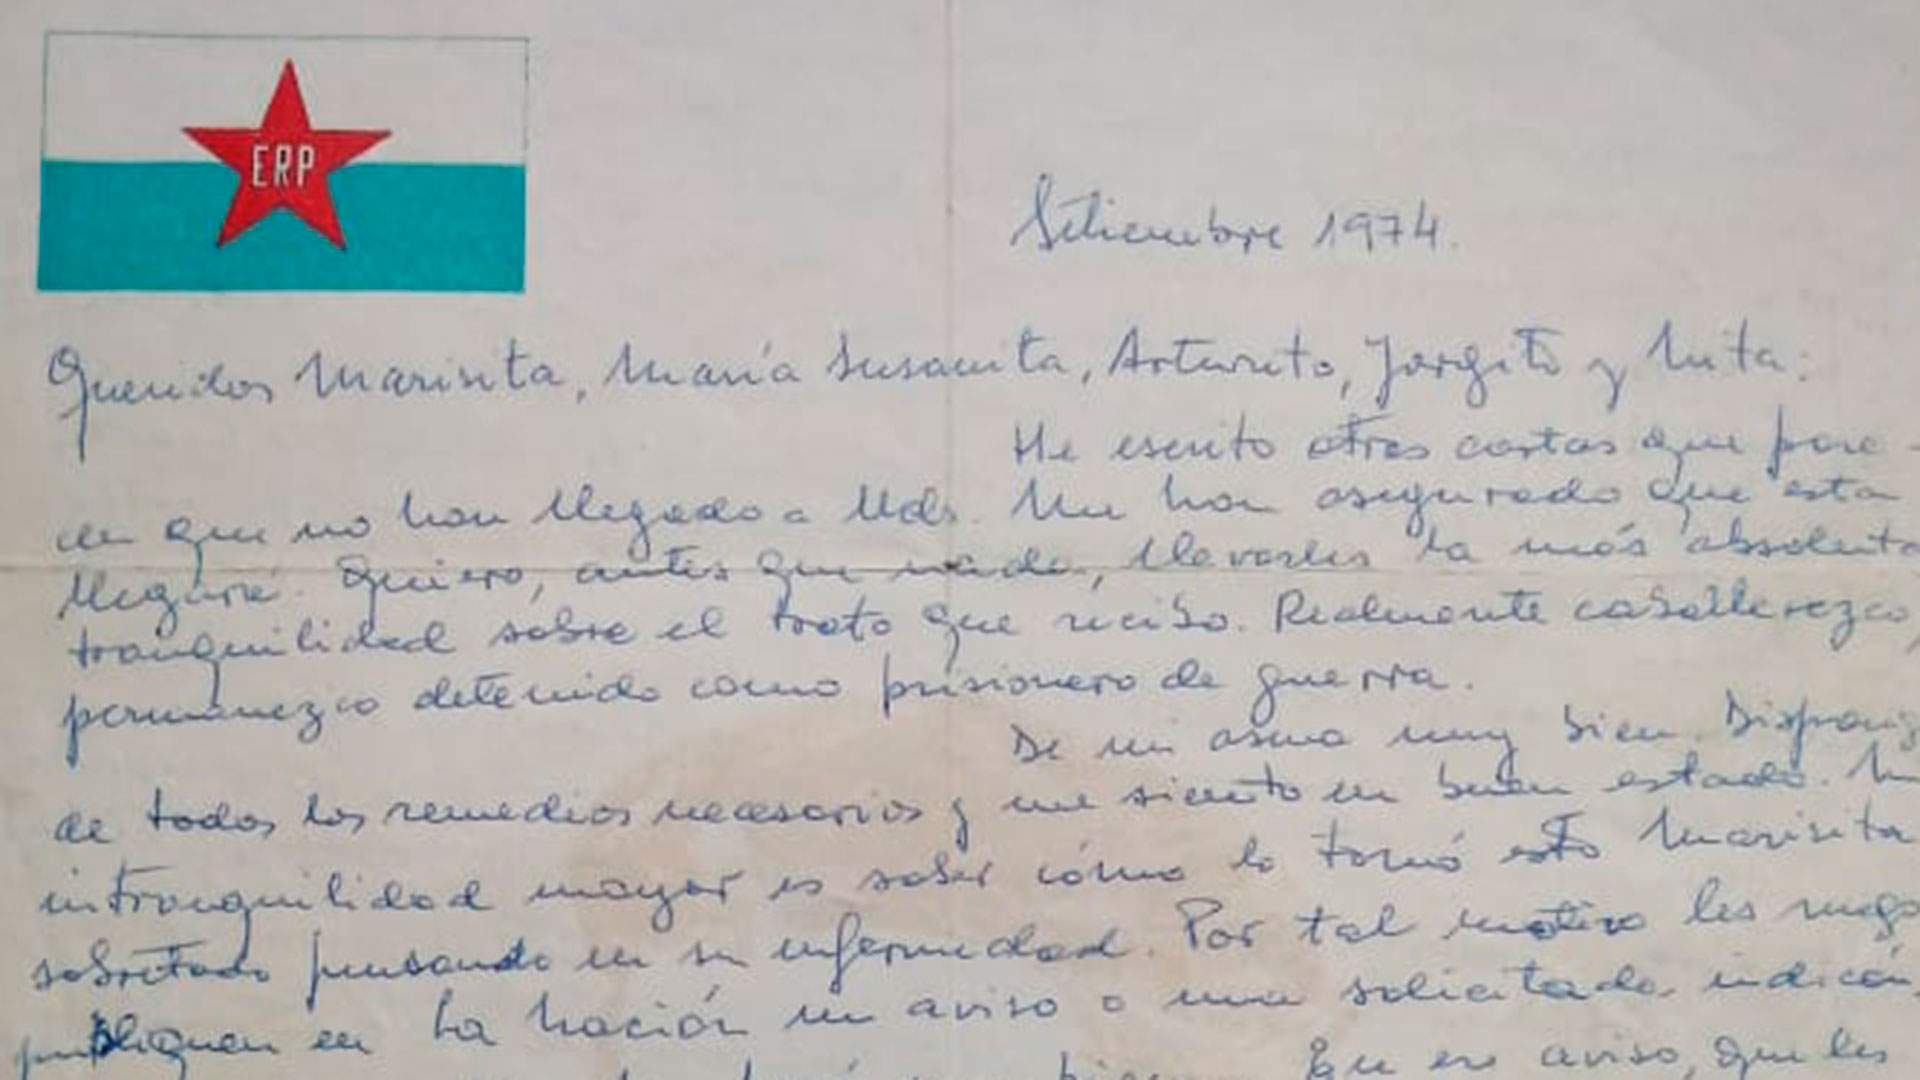 ERP
Setiembre 1974.
Queridos Marisita, María Susanita, Arturito, Jorgito y Mita:
He escrito otras cartas que pare-
cen que no han llegado a Uds. Me han asegurado que esta
llegará. Quiero, antes que nada, llevarles la más absoluta
tranquilidad sobre el trato que recibo. Realmente caballerezco,
permanezco detenido como prisionero de guerra.
De mi asma muy bien. Dispong
de todos los remedios necesarios y me siento en buen estado. M
intranquilidad mayor es saber cómo lo tomó esto Marisita
sobretodo pensando en su enfermedad. Por tal motivo les ruego
publiquen en La Nación un aviso o una solicitada indicán
En ese aviso, que les